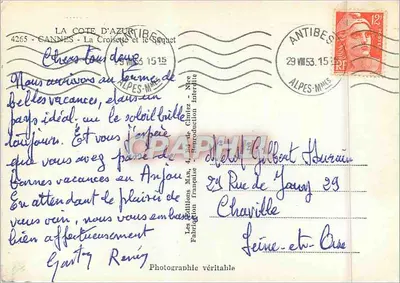 LA COTE D'AZUR
4265 - CANNES - La Croisette et le Suquet
ANTIBES
29 VIII 53. 15 15
ALPES-Mmes
ANTIBES
29 VIII 53. 15
ALPES-Mmes
12F
RF
Chers tous deux
Nous arrivons au terme de
belles vacances, dans un
pays idéal, où le soleil brille
toujours. Et vous j'espère
que vous avez passé de
bonnes vacances en Anjou
En attendant le plaisir de
vous voir, nous vous embrassons
bien affectueusement
Renée
Les Editions Mar, Nice
Fabrication française - Reproduction Interdite
Gilbert
29 Rue de Jouy 29
Chaville
Seine-et-Oise
Photographie véritable